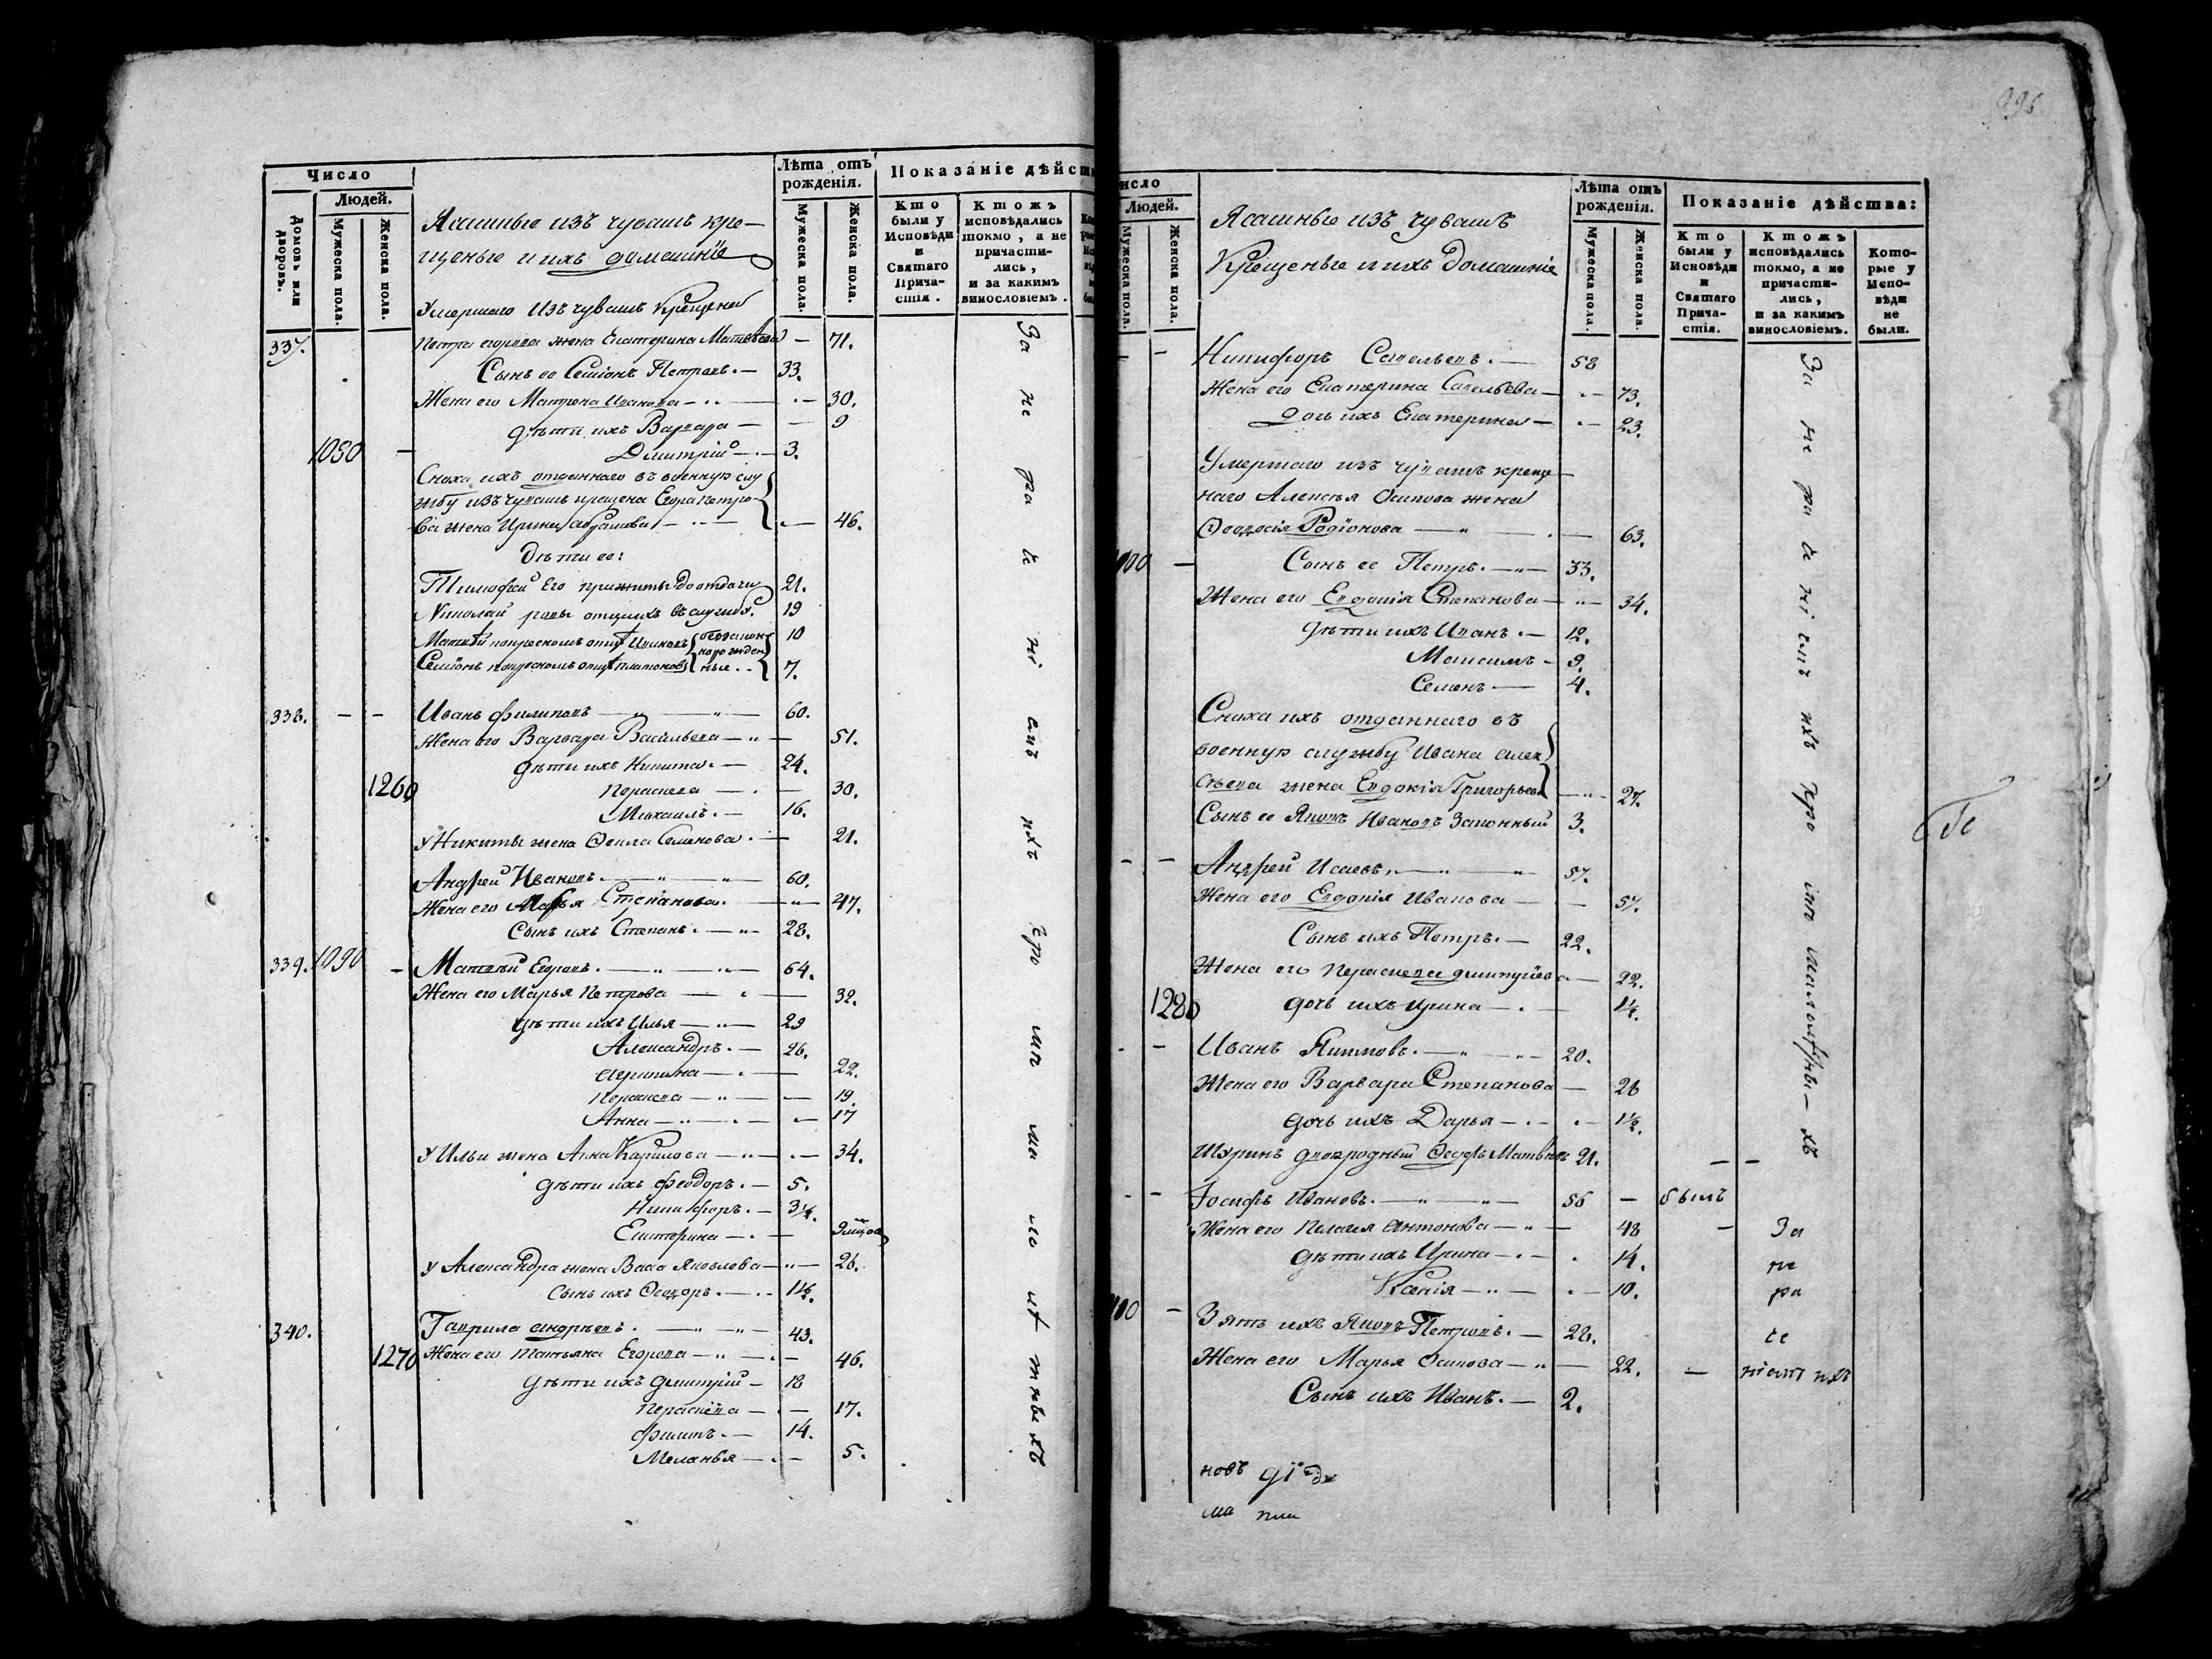 Число
Людей.
Домовъ или дворовъ.
Мужеска пола.
Женска пола.
Лѣта отъ рожденія.
Мужеска пола.
Женска пола.
Показаніе дѣйс
Кто были у Исповѣди и Святаго Причастія.
Ктожъ исповѣдались токмо, а не причастились, и за какимъ винословіемъ.
Ясашные изъ чувашъ кре-
щеные и ихъ домашніе
Умершаго изъ чувашъ крещена
337. Петра егорова жена Екатерина Матвѣева — 71.
Сынъ ее Семіонъ Петровъ. — 33.
Жена его Матрена Иванова — 30.
дѣти ихъ Варвара — 9
1080 — Дмитрій — 3.
Сноха ихъ отданнаго въ военную слу
жбу изъ чувашъ крещена Егора Петро-
ва жена Ирина Абрамова — 46.
Дѣти ее:
Тимофей его прижиты до отдачи 21.
Николай ровы отцихъ въ службу. 19
Матвѣй 10
Семіонъ 7.
338. — — Иванъ Филиповъ — 60.
Жена его Варвара Васильева — 51.
дѣти ихъ Никита. — 24.
1260 Пераскева — 30.
Михаилъ. — 16.
У Никиты жена Фекла Семенова. — 21.
Андрей Ивановъ. — 60.
Жена его Марья Степанова. — 47.
Сынъ ихъ Степанъ. — 28.
339. 1090 — Матвѣй Егоровъ. — 64.
Жена его Марья Петрова — 32.
дѣти ихъ Илья — 29
Александръ. — 26.
22.
Пераскева — 19.
Анна — 17
У Ильи жена Анна Кирилова — 34.
дѣти ихъ Феодоръ. — 5.
Никифоръ. — 3½.
Екатерина —
У Александра жена Васа Яковлева — 26.
Сынъ ихъ Феодоръ. — 1½.
340. Гаврила андреевъ. — 43.
1270 Жена его Татьяна Егорова — 46.
дѣти ихъ дмитрій — 18
Пераскева — 17.
Филипъ. — 14.
Меланья — 5.
За не ра че ні емъ ихъ
исло
Людей.
Мужеска пола.
Женска пола.
Лѣта отъ рожденія.
Мужеска пола.
Женска пола.
Показаніе дѣйства:
Кто были у Исповѣди и Святаго Причастія.
Ктожъ исповѣдались токмо, а не причастились, и за какимъ винословіемъ.
Которые у Исповѣди не были.
Ясашные изъ чувашъ
Крещеные и ихъ Домашніе
— — Никифоръ Савельевъ. — 58
Жена его Екатерина Савельева — 73.
Дочь ихъ Екатерина — 23.
Умершаго изъ чувашъ креще
наго Алексѣя Осипова жена
Феодосія Родіонова — 63.
100 — Сынъ ее Петръ. — 33.
Жена его Евдокія Степанова — 34.
дѣти ихъ Иванъ. — 12.
Максимъ — 9.
Семенъ — 4.
Сноха ихъ отданнаго въ
военную службу Ивана Алек
сѣева жена Евдокія Григорьева — 27.
Сынъ ее Яковъ Ивановъ Законный 3.
— — Андрей Исаевъ. — 57.
Жена его Евдокія Иванова — 57.
Сынъ ихъ Петръ. — 22.
Жена его Пераскева дмитріева — 22.
1280 дочь ихъ Ирина — 1½.
— Иванъ — 20.
Жена его Варвара Степанова — 26
дочь ихъ Дарья — 1½.
Шуринъ двоюродный Матвѣевъ 21. — —
— — Іосифъ Ивановъ. — 56 — былъ
Жена его Пелагея Антонова — 48 — За
дѣти ихъ Ирина — 14. не
Ксенія — 10. ра
110 — Зять ихъ Яковъ Петровъ. — 22. че
Жена его Марья Осипова — 22. — ніемъ ихъ
Сынъ ихъ Иванъ. — 2.
За не ра че ні емъ ихъ
новъ